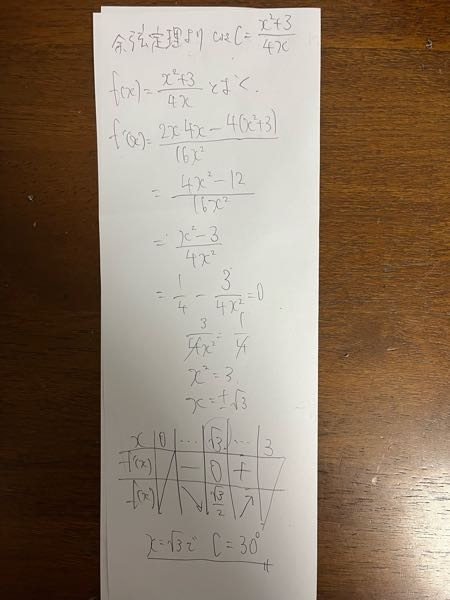 余弦定理より cosC = x²+3/4x
f(x) = x²+3/4x とおく.
f'(x) = 2x·4x - 4(x²+3)/16x²
= 4x²-12/16x²
= x²-3/4x²
= 1/4 - 3/4x² = 0
3/4x² = 1/4
x² = 3
x = ±√3
x | 0 | … | √3 | … | 3
f'(x) | | - | 0 | + |
f(x) | | ↘ | √3/2 | ↗ |
x=√3で C=30°